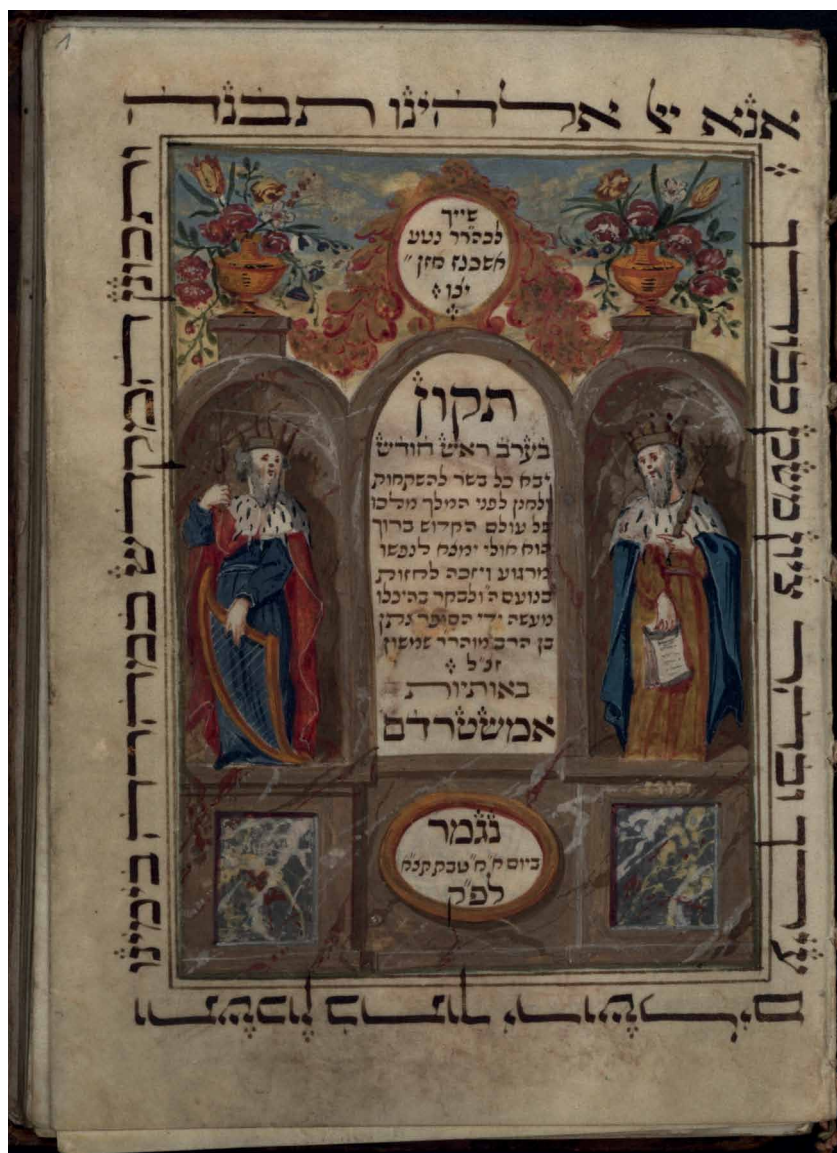 אנא אלהינו תבנה
עירך ציון משכן כבודך
ותשכון בתוך ירושלים
ותכונן המקדש במהרה בימינו
שייך
לכה"רר נטע
אשכנז חזן
יצו
תקון
בערב ראש חודש
יבא כל בשר להשתחות
ולחנן לפני המלך מלכו
של עולם הקדוש ברוך
הוא חולי ימצא לנפשו
מרגוע ויזכה לחזות
בנועם ה' ולבקר בהיכלו
מעשה ידי הסופר נתן
בן הרב מוהרר שמשון
זצ"ל
באותיות
אמשטרדם
נגמר
ביום טבת
לפ"ק